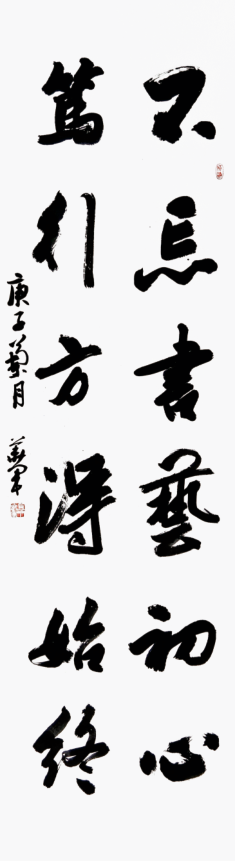 不忘書藝初心
篤行方得始終
庚子菊月